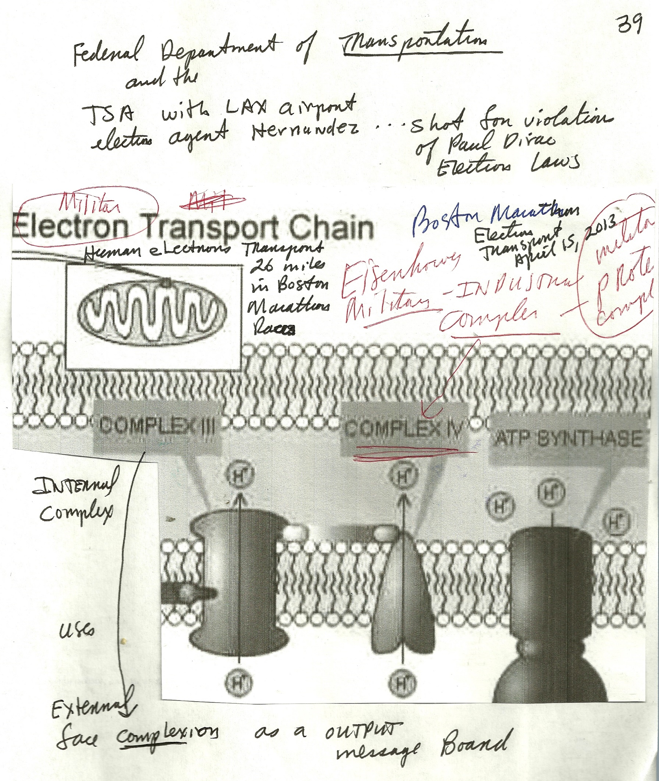 39
Federal Department of Transportation
and the
TSA with LAX airport
election agent Hernandez ... shot for violation
of Paul Dirac
Election Laws
Militar
Electron Transport Chain
Boston Marathon
Election
Transport
April 15, 2013
Human electrons Transport
26 miles
in Boston
Marathon
Races
Eisenhower
Military - INDUSTRIAL
Complex
COMPLEX III
COMPLEX IV
ATP SYNTHASE
H+
H+
H+
H+
H+
INTERNAL
Complex
uses
H+
H+
External
face complexion as a OUTPUT
message Board